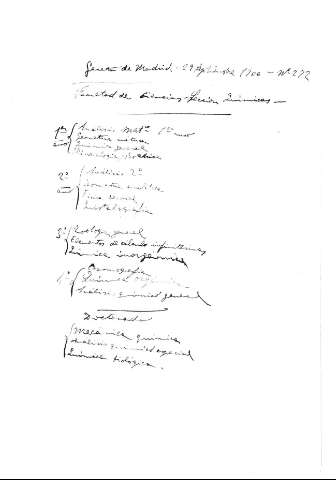 Gaceta de Madrid - 29 Septiembre 1900 - Nº 272
Facultad de Ciencias - Sección Químicas -
1er año
Análisis Matco 1er
Geometría
Química general
2º
Análisis 2º
Geometría analítica
Física general
Cristalografía
3º
Zoología general
Elementos de cálculo infinitesimal
Química inorgánica
4º
Cosmografía
Química orgánica
Análisis químico general
Doctorado
Mecánica química
Análisis químico especial
Química biológica.